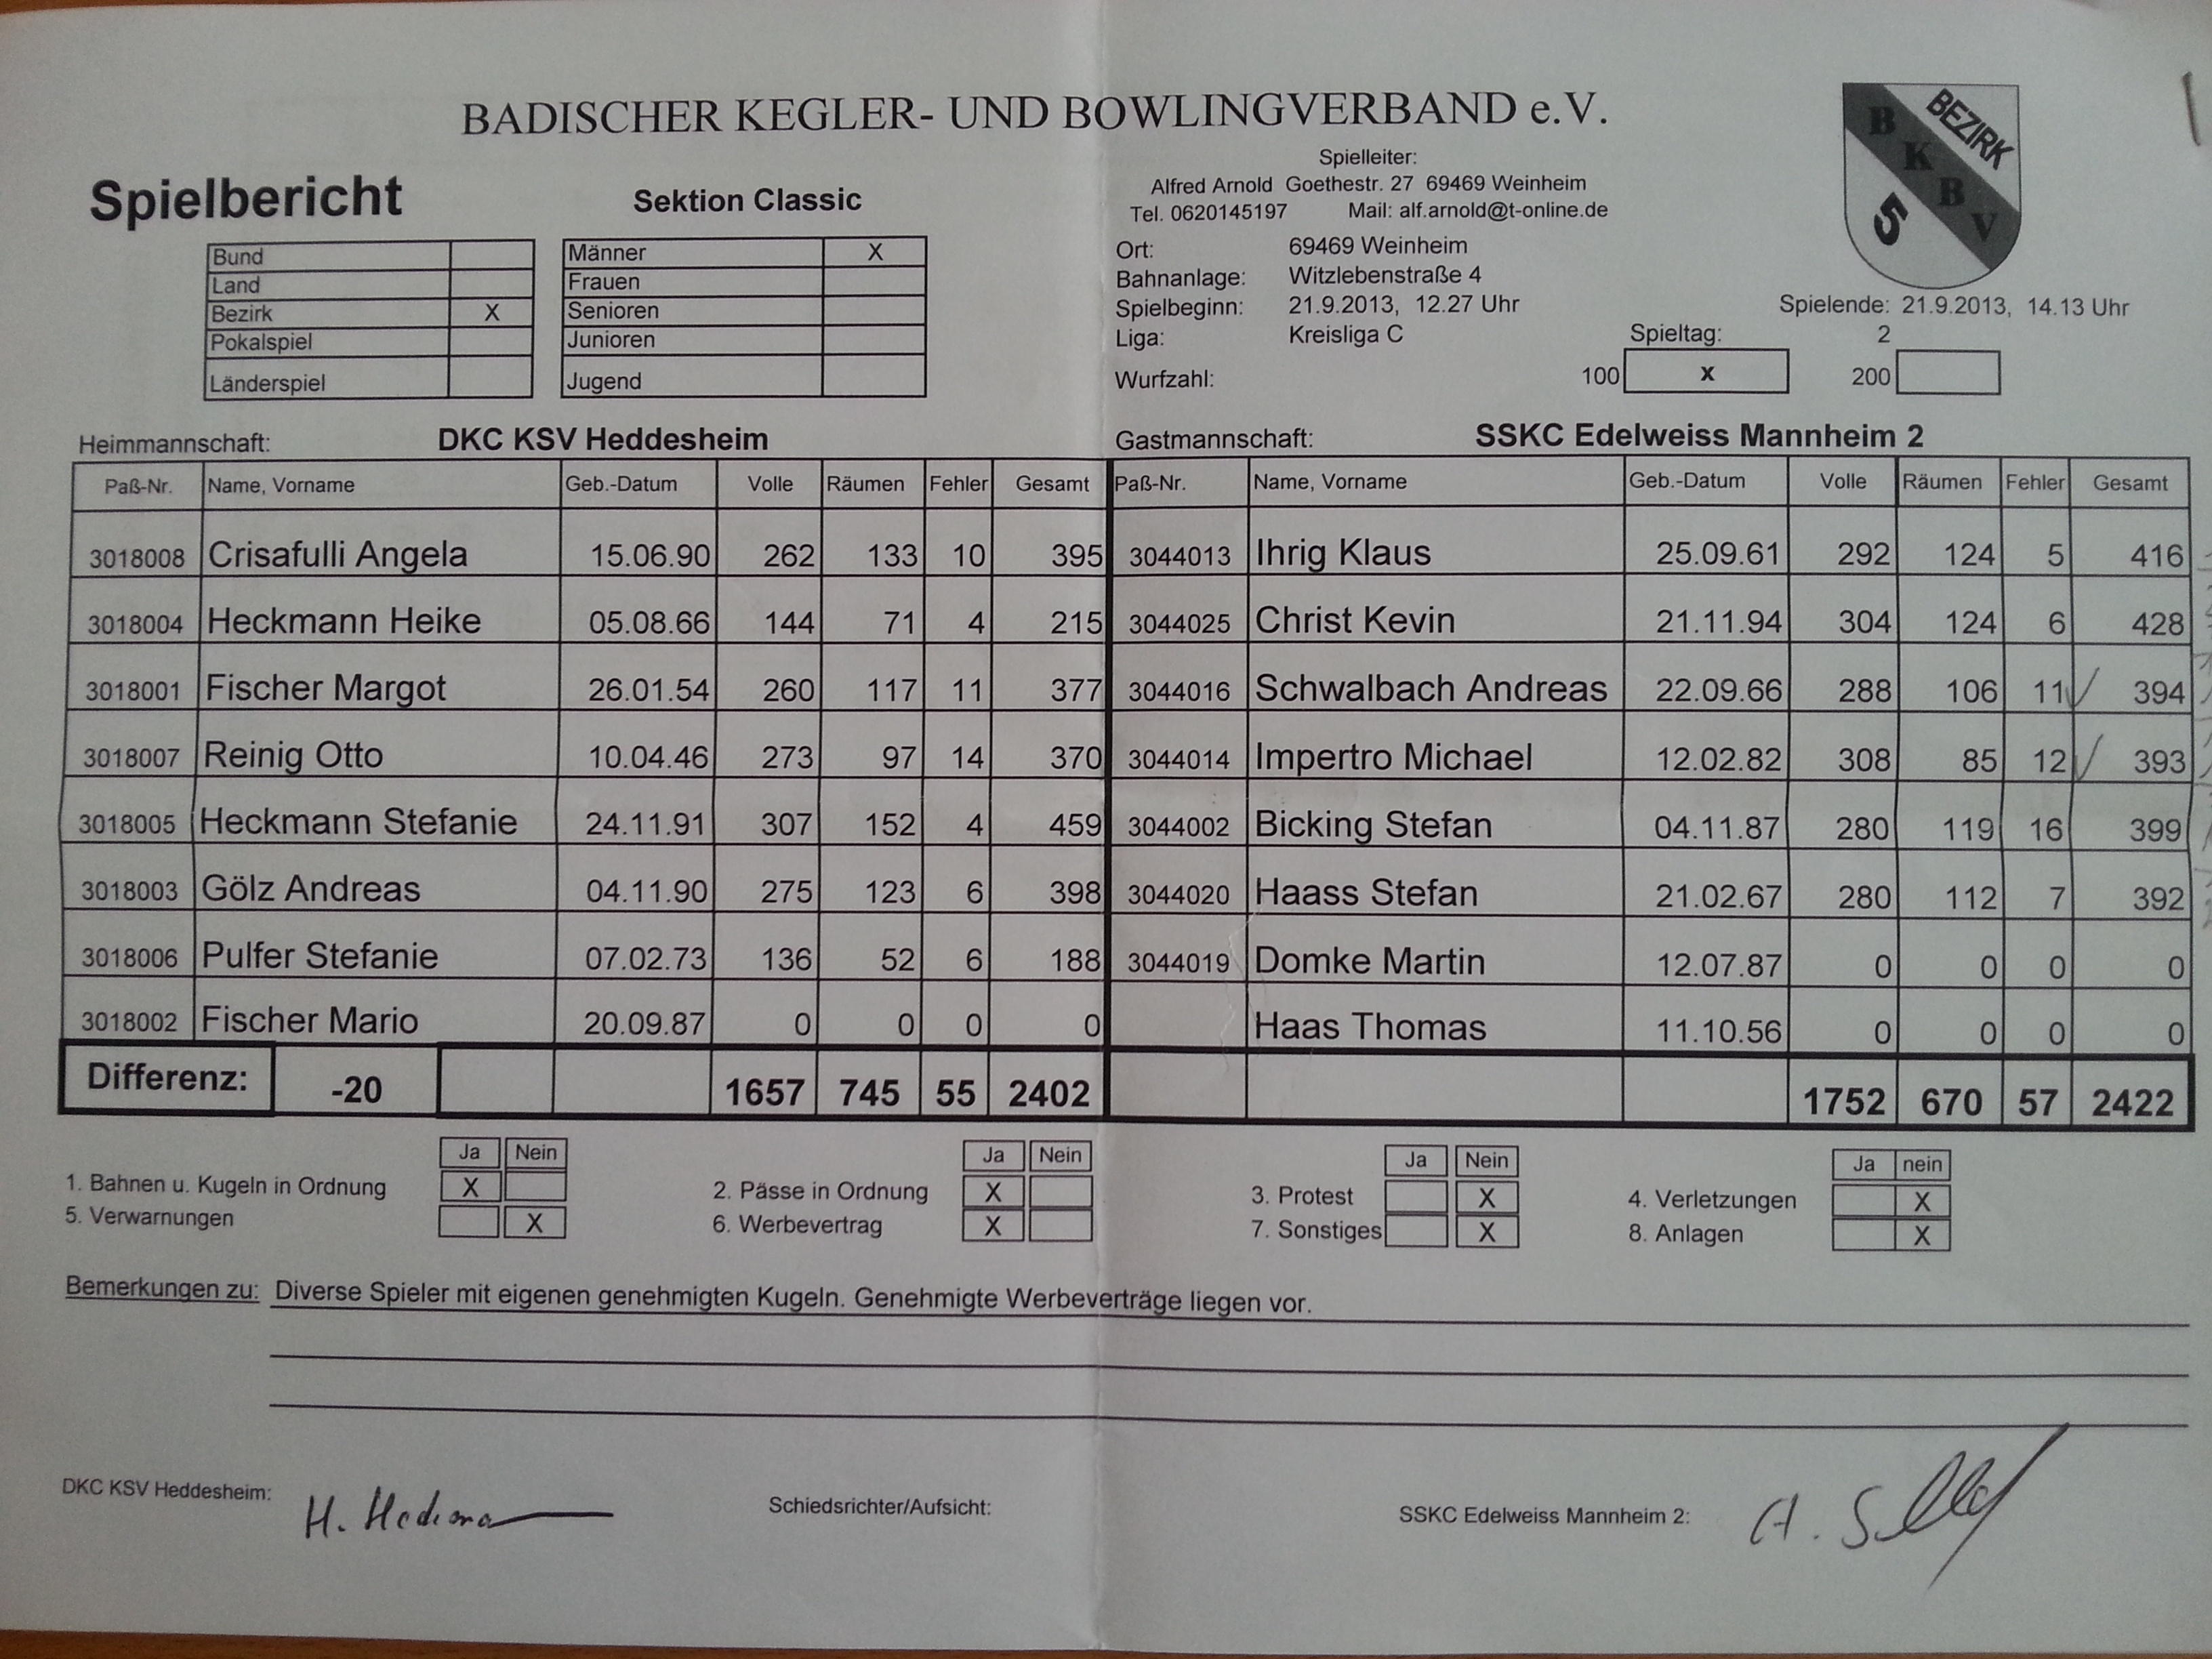 BADISCHER KEGLER- UND BOWLINGVERBAND e.V.
BEZIRK
B K B V
5
Spielbericht
Sektion Classic
Spielleiter:
Alfred Arnold Goethestr. 27 69469 Weinheim
Tel. 0620145197 Mail: alf.arnold@t-online.de
Bund
Land
Bezirk X
Pokalspiel
Länderspiel
Männer X
Frauen
Senioren
Junioren
Jugend
Ort: 69469 Weinheim
Bahnanlage: Witzlebenstraße 4
Spielbeginn: 21.9.2013, 12.27 Uhr Spielende: 21.9.2013, 14.13 Uhr
Liga: Kreisliga C Spieltag: 2
Wurfzahl: 100 x 200
Heimmannschaft: DKC KSV Heddesheim Gastmannschaft: SSKC Edelweiss Mannheim 2
Paß-Nr. Name, Vorname Geb.-Datum Volle Räumen Fehler Gesamt Paß-Nr. Name, Vorname Geb.-Datum Volle Räumen Fehler Gesamt
3018008 Crisafulli Angela 15.06.90 262 133 10 395 3044013 Ihrig Klaus 25.09.61 292 124 5 416
3018004 Heckmann Heike 05.08.66 144 71 4 215 3044025 Christ Kevin 21.11.94 304 124 6 428
3018001 Fischer Margot 26.01.54 260 117 11 377 3044016 Schwalbach Andreas 22.09.66 288 106 11 394
3018007 Reinig Otto 10.04.46 273 97 14 370 3044014 Impertro Michael 12.02.82 308 85 12 393
3018005 Heckmann Stefanie 24.11.91 307 152 4 459 3044002 Bicking Stefan 04.11.87 280 119 16 399
3018003 Gölz Andreas 04.11.90 275 123 6 398 3044020 Haass Stefan 21.02.67 280 112 7 392
3018006 Pulfer Stefanie 07.02.73 136 52 6 188 3044019 Domke Martin 12.07.87 0 0 0 0
3018002 Fischer Mario 20.09.87 0 0 0 0 Haas Thomas 11.10.56 0 0 0 0
Differenz: -20 1657 745 55 2402 1752 670 57 2422
Ja Nein Ja Nein Ja Nein Ja nein
1. Bahnen u. Kugeln in Ordnung X 2. Pässe in Ordnung X 3. Protest X 4. Verletzungen X
5. Verwarnungen X 6. Werbevertrag X 7. Sonstiges X 8. Anlagen X
Bemerkungen zu: Diverse Spieler mit eigenen genehmigten Kugeln. Genehmigte Werbeverträge liegen vor.
DKC KSV Heddesheim: H. Schiedsrichter/Aufsicht: SSKC Edelweiss Mannheim 2: A.